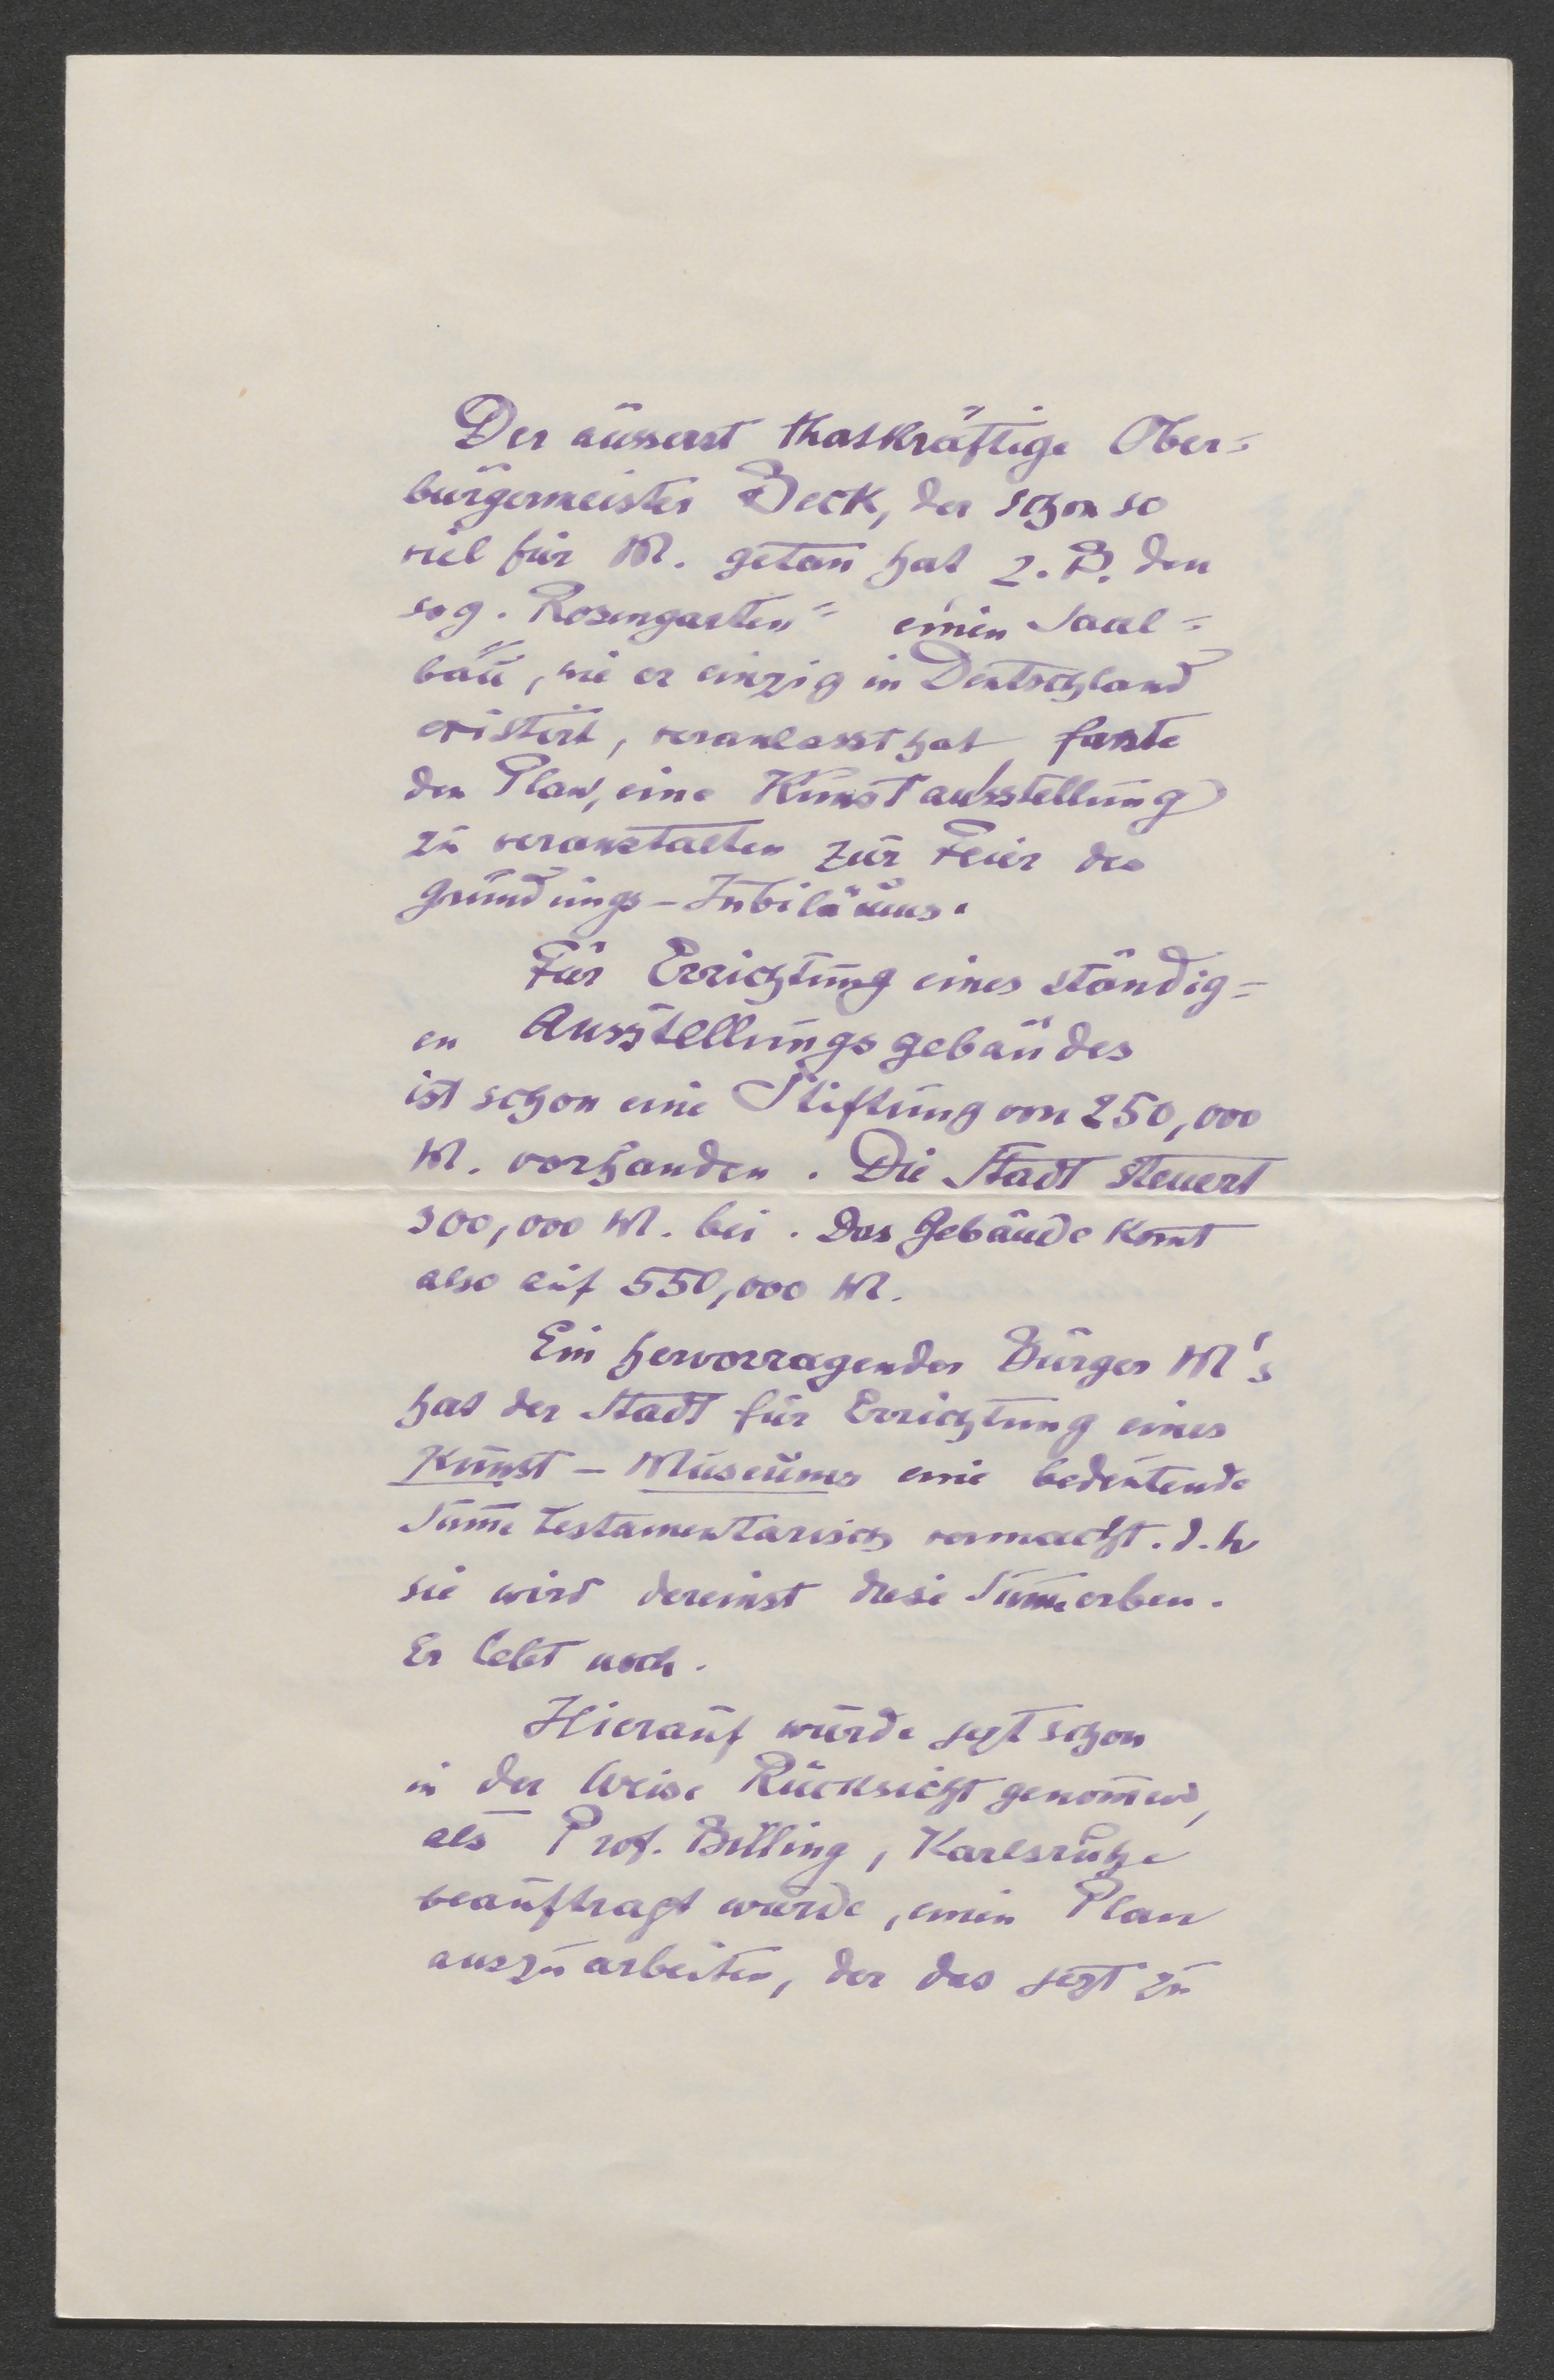 Der äusserst thatkräftige Ober=
bürgermeister Beck, der schon so
viel für M. getan hat z. B. den
sog. Rosengarten" einen Saal=
bau, wie er einzig in Deutschland
existirt, veranlasst hat fasste
den Plan, eine Kunstausstellung
zu veranstalten zur Feier des
Gründungs-Jubiläums.
Für Errichtung eines ständig=
en Ausstellungsgebäudes
ist schon eine Stiftung von 250,000
M. vorhanden. Die Stadt steuert
300,000 M. bei. Das Gebäude kom̄t
also auf 550,000 M.
Ein hervorragender Bürger M's
hat der Stadt für Errichtung eines
Kunst-Museums eine bedeutende
Sum̄e testamentarisch vermacht. d.h
sie wird dereinst diese Sum̄e erben.
Er lebt noch.
Hierauf wurde jezt schon
in der Weise Rücksicht genom̄en,
als Prof. Billing, Karlsruhe
beauftragt wurde, einen Plan
auszuarbeiten, der das jezt zu